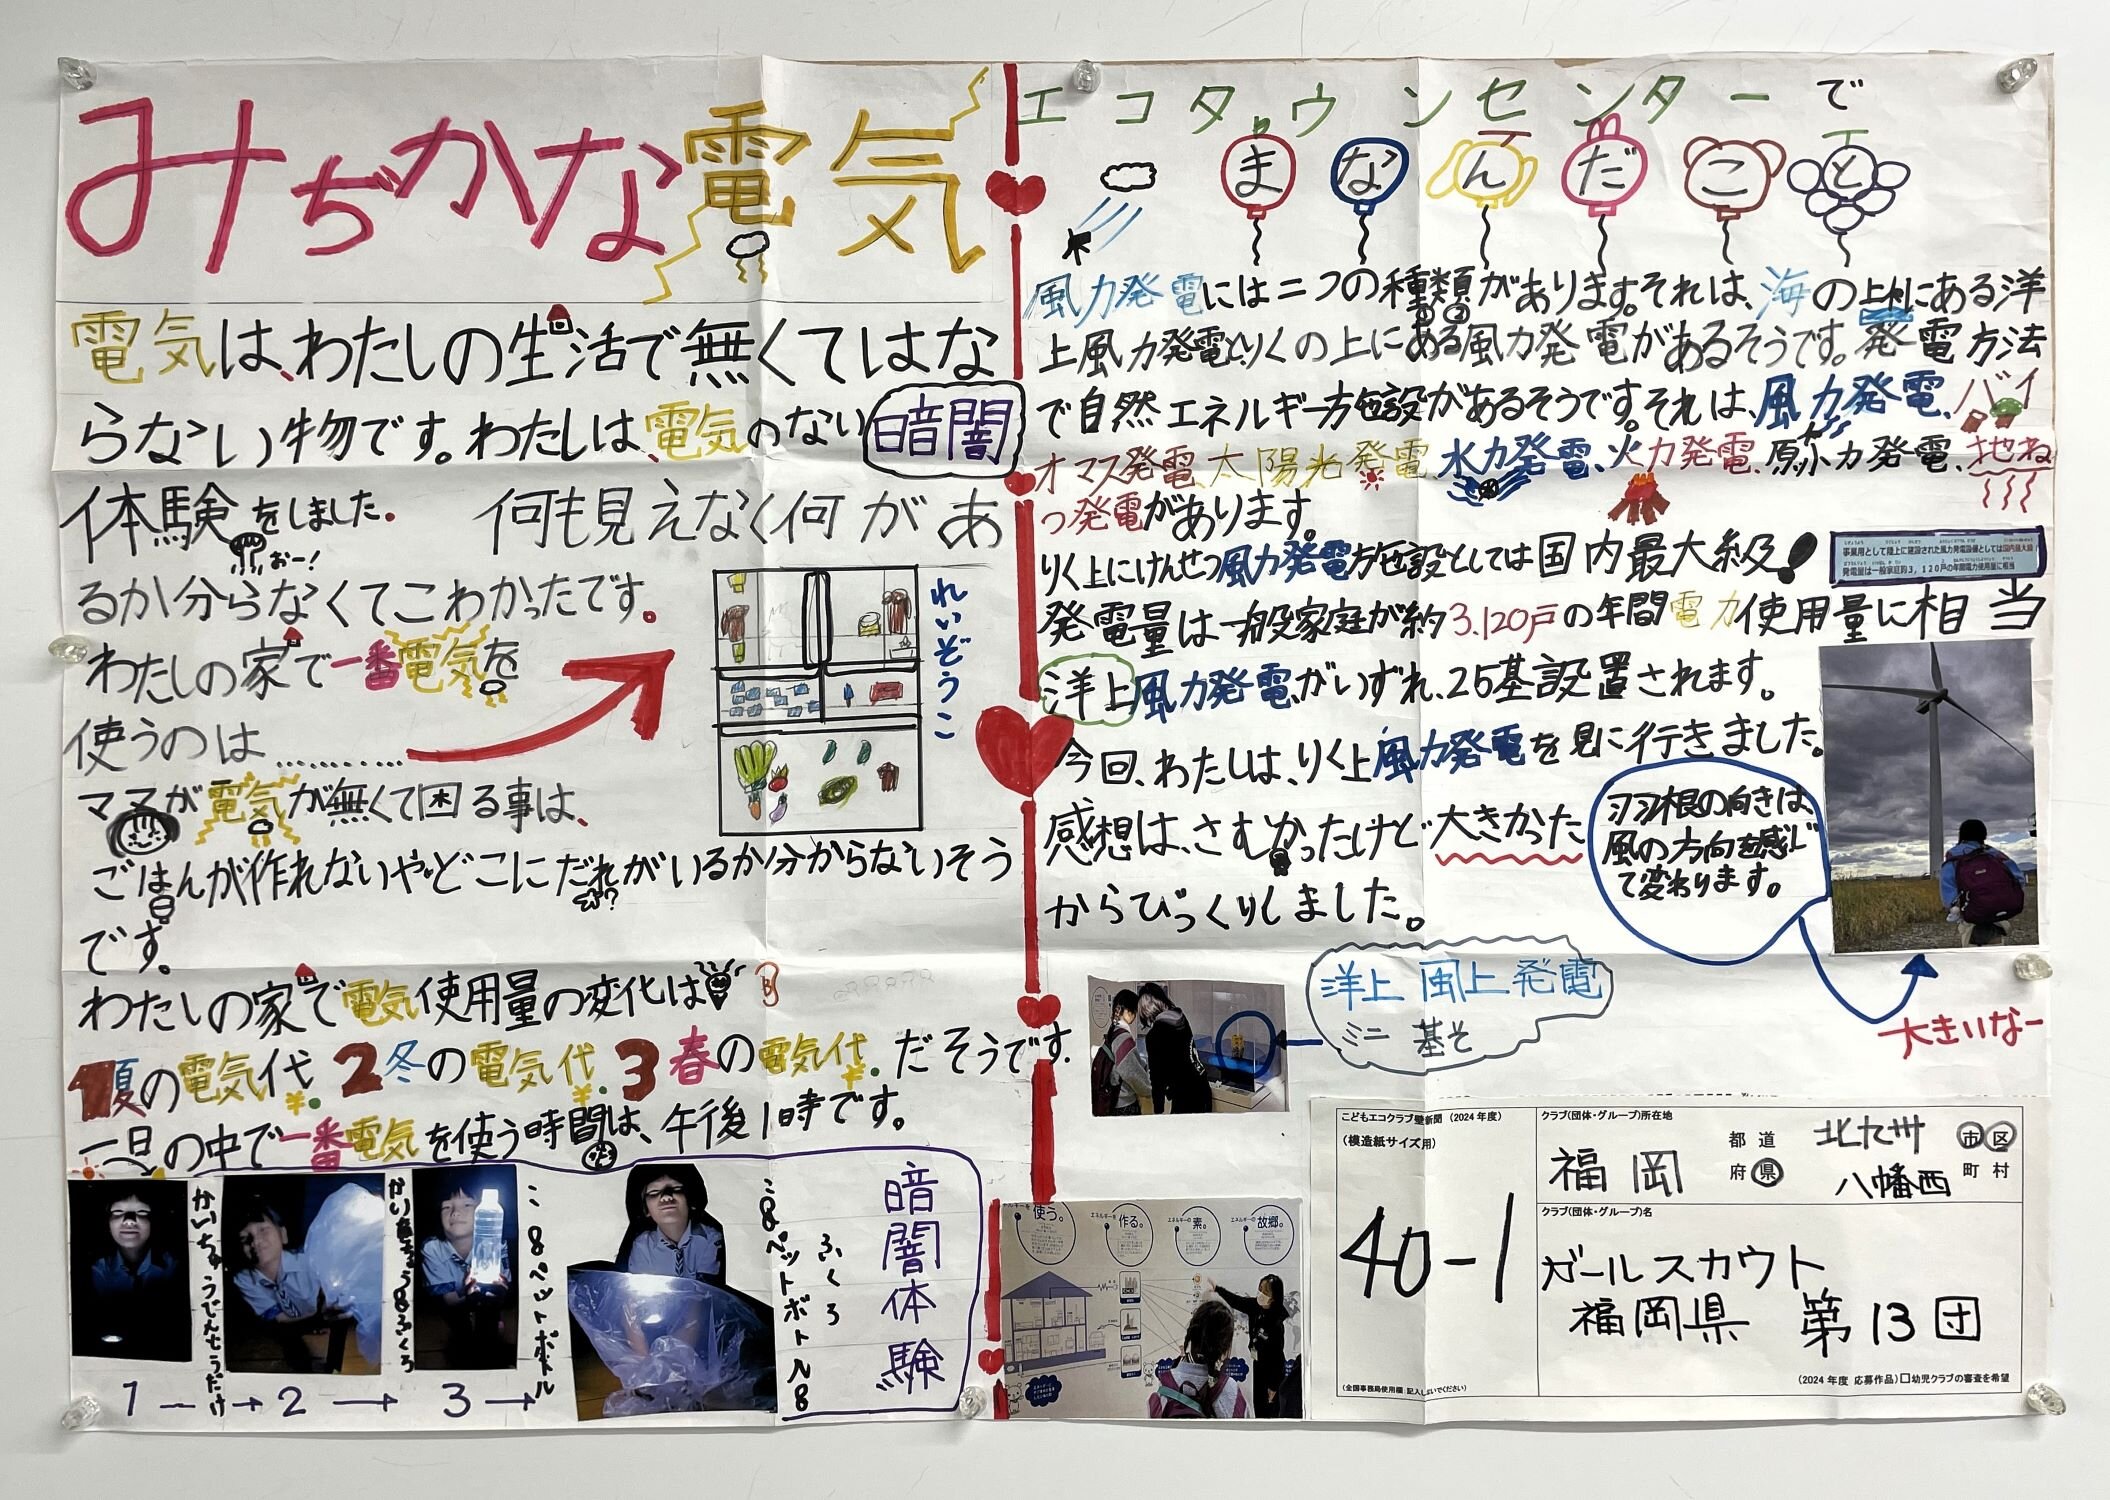 みぢかな電気
電気は、わたしの生活で無くてはな
らない物です。わたしは、電気のない暗闇
体験をしました。 何も見えなく何があ
おー!
るか分らなくてこわかったです。
わたしの家で一番電気を
使うのは…………
れいぞうこ
ママが電気が無くて困る事は、
ごはんが作れないや、どこにだれがいるか分からないそう
です。
わたしの家で電気使用量の変化は
1夏の電気代.2冬の電気代.3春の電気代.だそうです.
一日の中で一番電気を使う時間は、午後1時です。
かいちゅうでんとうだけ
ふくろ
ペットボトル
ペットボトル
ふくろ
暗闇体験
1→2→3→
エコタウンセンターで
まなんだこと
風力発電には二つの種類があります。それは、海の上にある洋
上風力発電とりくの上にある風力発電があるそうです。発電方法
で自然エネルギー施設があるそうです。それは、風力発電、バイ
オマス発電、太陽光発電、水力発電、火力発電、原子力発電、地ね
つ発電があります。
りく上にけんせつ風力発電施設としては国内最大級!
事業用として陸上に建設された風力発電設備としては国内最大級
発電量は一般家庭約3,120戸の年間電力使用量に相当
発電量は一般家庭が約3.120戸の年間電力使用量に相当
洋上風力発電がいずれ、25基設置されます。
今回、わたしは、りく上風力発電を見に行きました。
感想は、さむかったけど大きかった
からびっくりしました。
羽根の向きは、
風の方向を感じ
て変わります。
大きいなー
洋上風上発電
ミニ 基そ
使う。
エネルギーを 作る。
エネルギーの 素。
エネルギーの 故郷。
こどもエコクラブ壁新聞(2024年度)
(模造紙サイズ用)
40-1
(全国事務局使用欄 記入しないでください)
クラブ(団体・グループ)所在地
福岡 都道府県 北九州 八幡西 市区町村
クラブ(団体・グループ)名
ガールスカウト
福岡県 第13団
(2024年度 応募作品)□幼児クラブの審査を希望